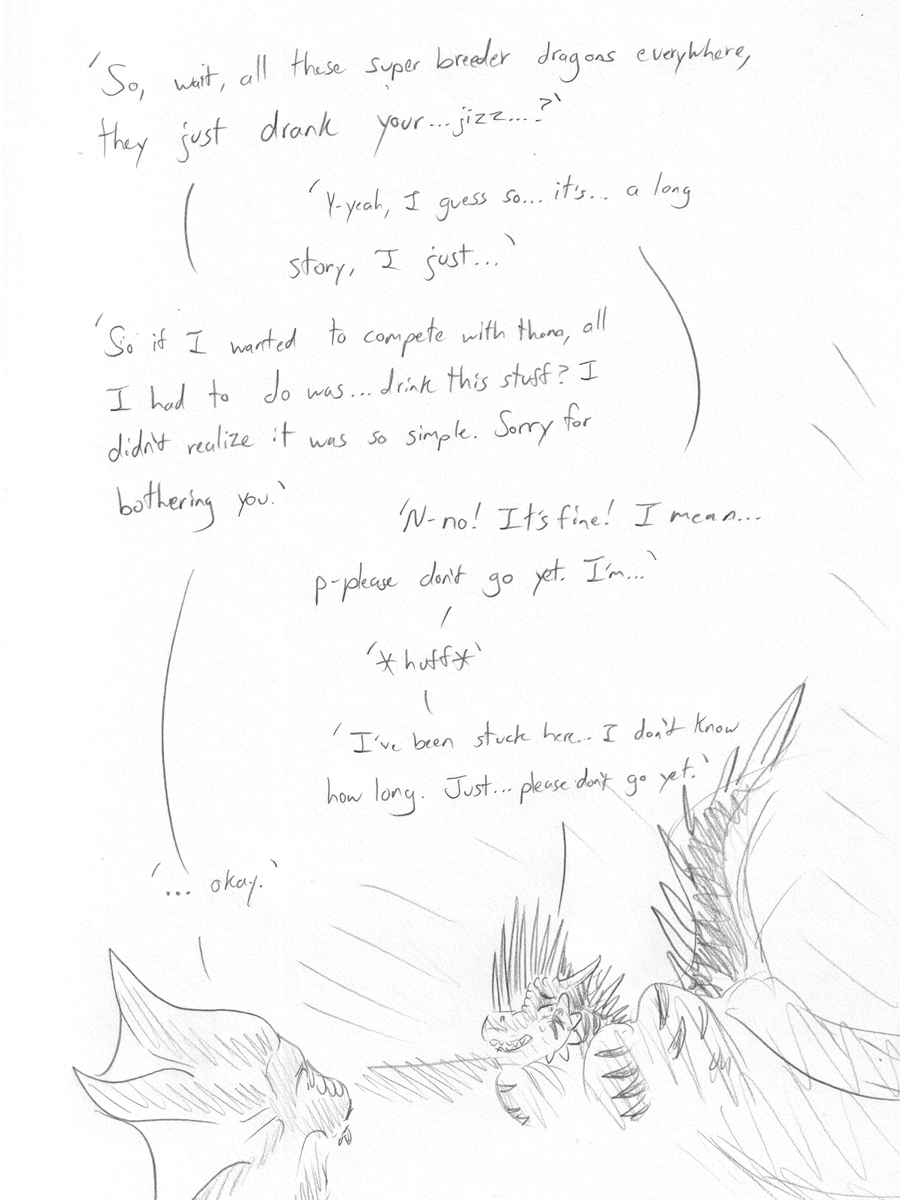 'So, wait, all these super breeder dragons everywhere,
they just drank your...jizz...?'
'Y-yeah, I guess so... it's... a long
story, I just...'
'So if I wanted to compete with them, all
I had to do was... drink this stuff? I
didn't realize it was so simple. Sorry for
bothering you.'
'N-no! It's fine! I mean...
p-please don't go yet. I'm...'
'*huff*'
'I've been stuck here... I don't know
how long. Just... please don't go yet.'
'... okay.'